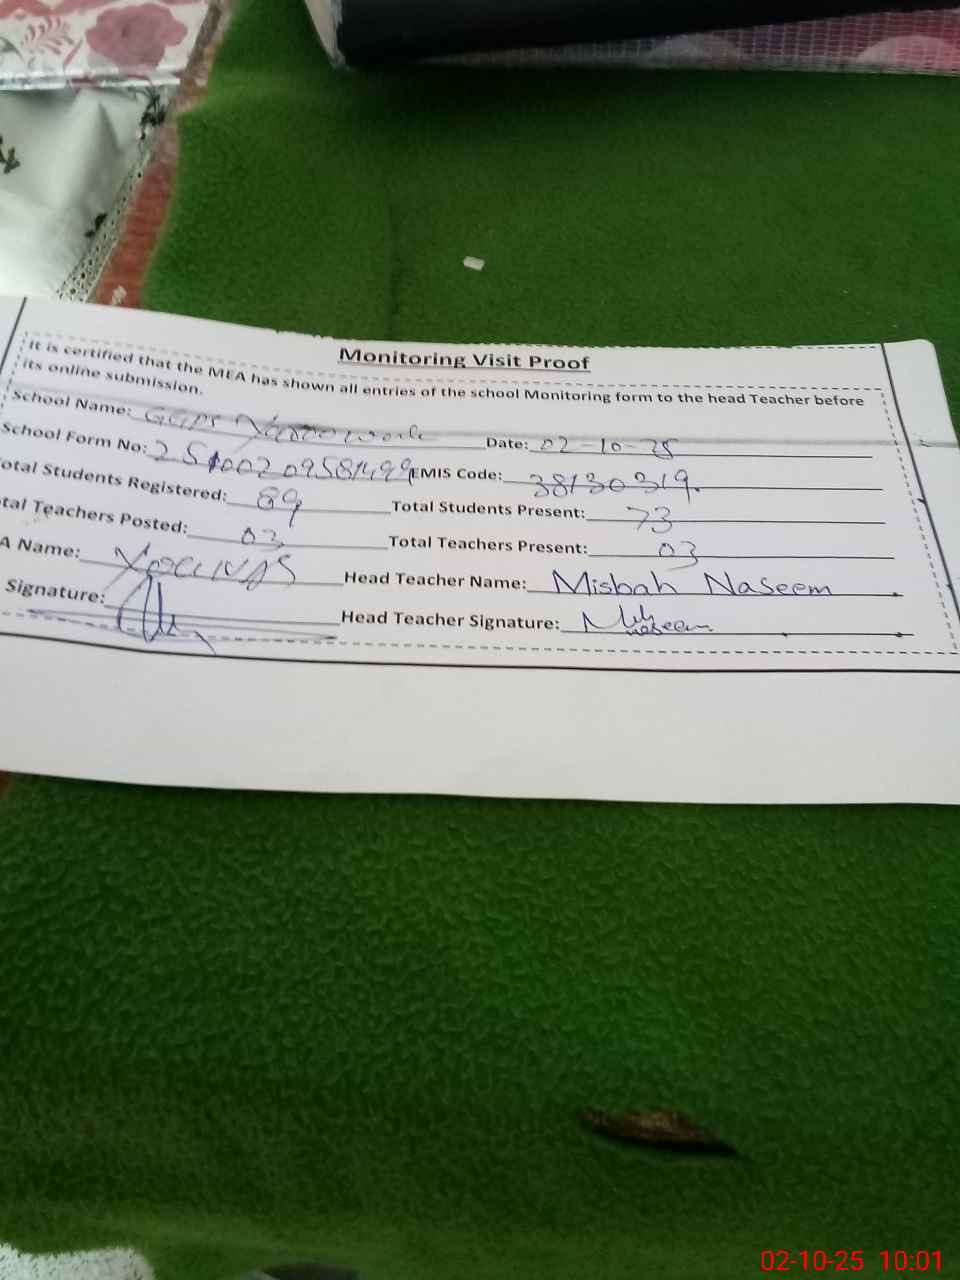 Monitoring Visit Proof
It is certified that the MEA has shown all entries of the school Monitoring form to the head Teacher before
its online submission.
School Name: GGPS Date: 02-10-25
School Form No: EMIS Code: 38130319.
otal Students Registered: 89 Total Students Present: 73
tal Teachers Posted: 03 Total Teachers Present: 03
A Name: Head Teacher Name: Misbah Naseem
Signature: Head Teacher Signature: naseem
02-10-25 10:01